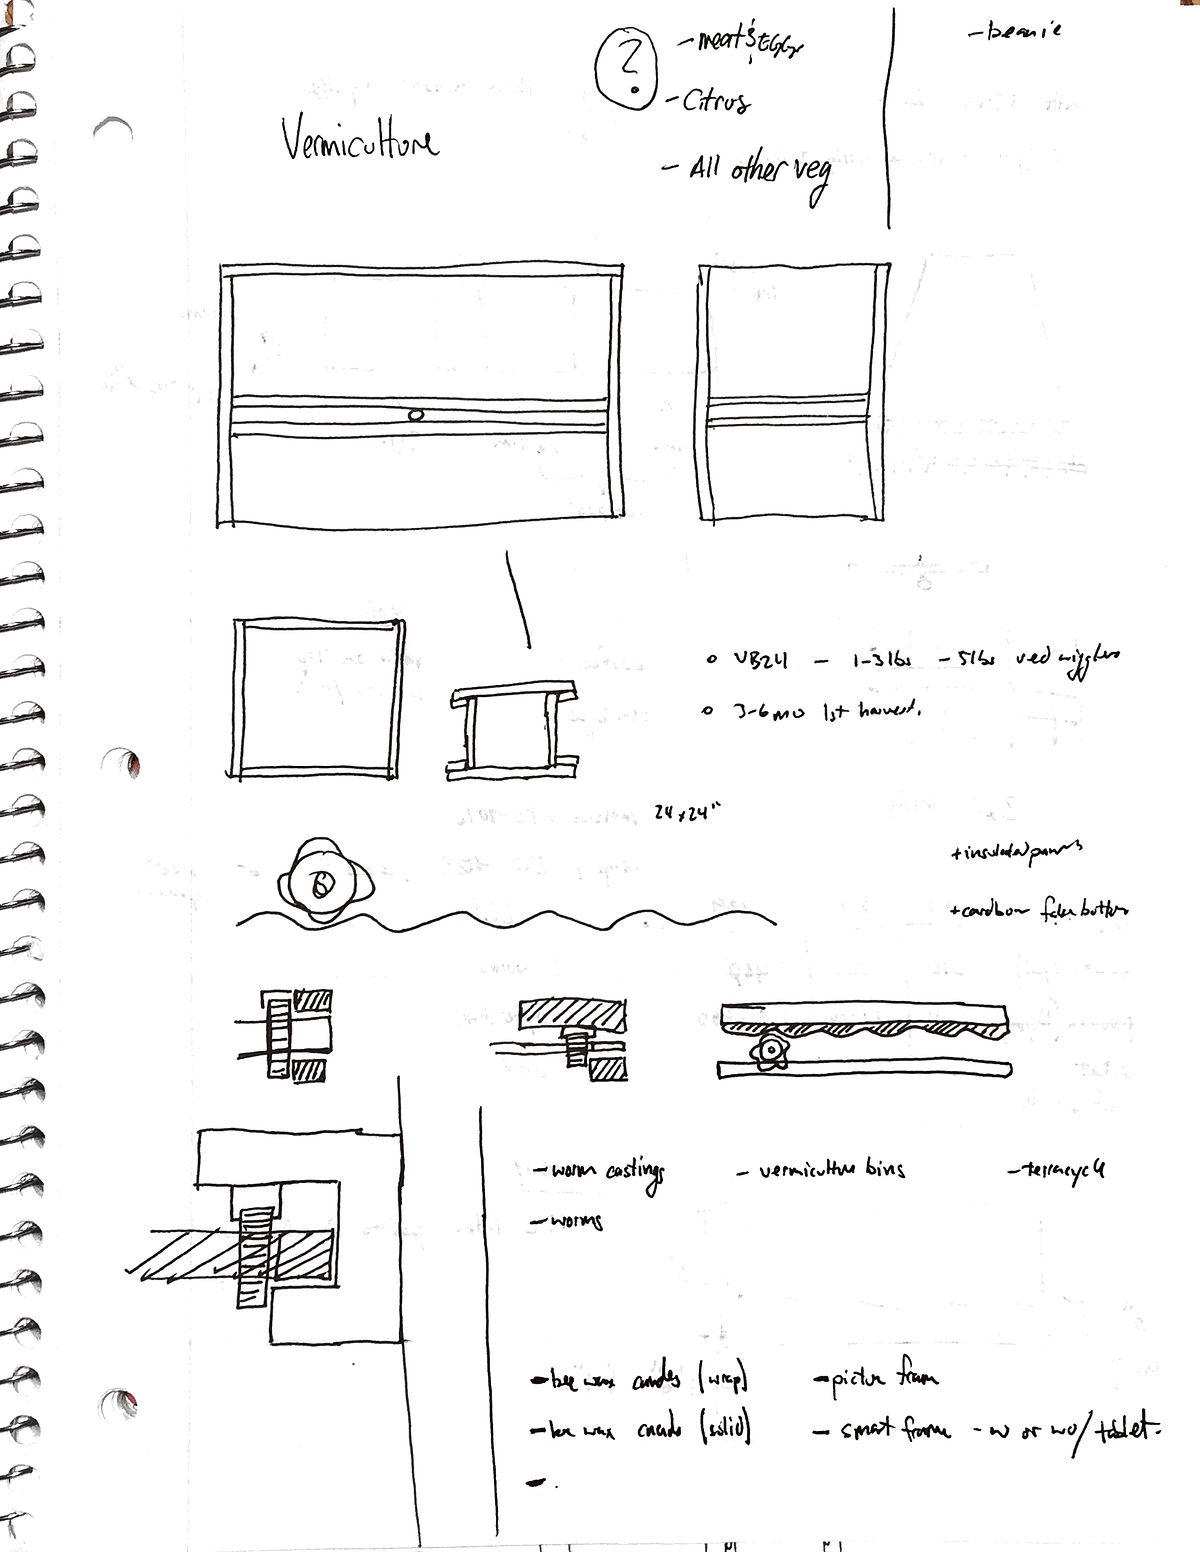 - meat & Eggs
- beanie
?
- Citrus
Vermiculture
- All other veg
o VB24 - 1-3 lbs - 5lbs red wigglers
o 3-6 mo 1st harvest.
24 x 24"
+ insulated panels
+ false bottom
- worm castings
- vermiculture bins
- terracycle
- worms
- bee wax candles (wrap)
- picture frame
- bee wax candles (solid)
- smart frame - w or wo/ tablet.
- .